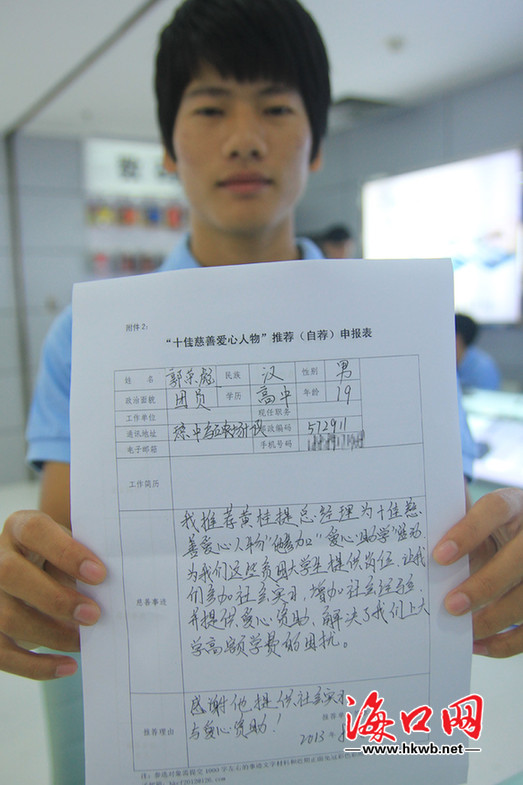 附件2：
“十佳慈善爱心人物”推荐（自荐）申报表
姓 名 郭荣彪 民族 汉 性别 男
政治面貌 团员 学历 高中 年龄 19
工作单位 现任职务
通讯地址 琼中 邮政编码 572911
电子邮箱 手机号码
工作简历
慈善事迹
我推荐黄桂提总经理为十佳慈
善爱心人物“他参加”“爱心助学”活动，
为我们这些贫困大学生提供岗位，让我
们参加社会实习，增加社会经验，
并提供爱心资助，解决了我们上大
学高额学费的困扰。
推荐理由
感谢他提供社会实习
与爱心资助！
推荐
2013年
海口网
www.hkwb.net